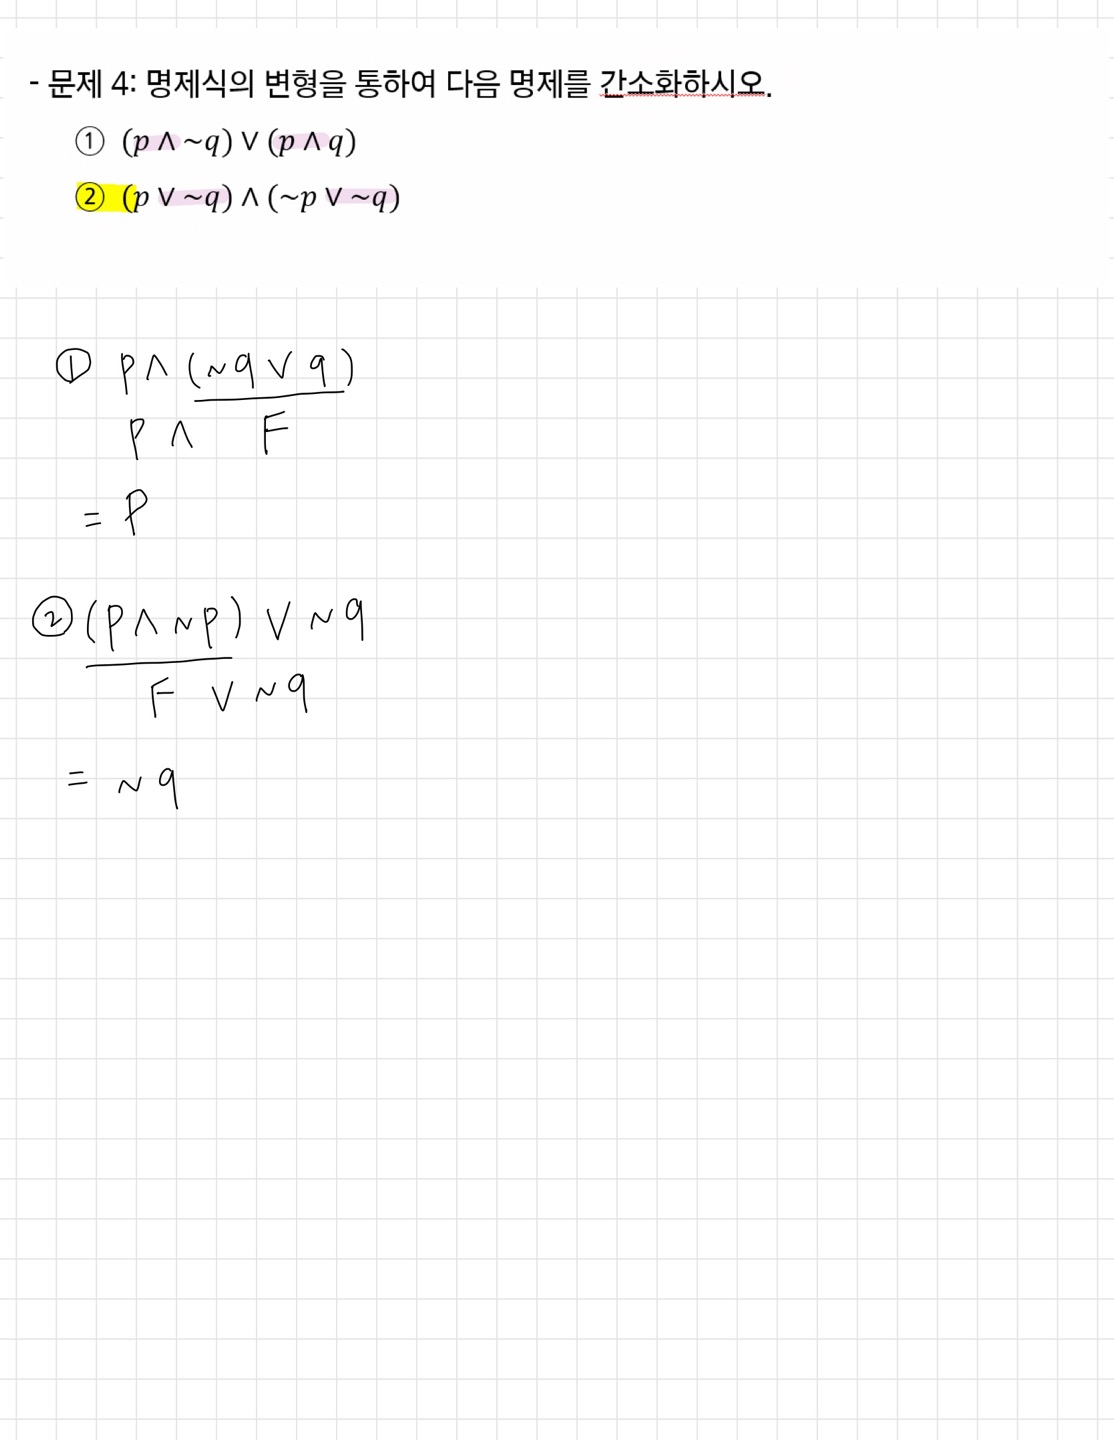 - 문제 4: 명제식의 변형을 통하여 다음 명제를 간소화하시오.
① (p ∧ ~q) ∨ (p ∧ q)
② (p ∨ ~q) ∧ (~p ∨ ~q)
① P ∧ (~q ∨ q)
P ∧ F
= P
② (P ∧ ~P) ∨ ~q
F ∨ ~q
= ~q